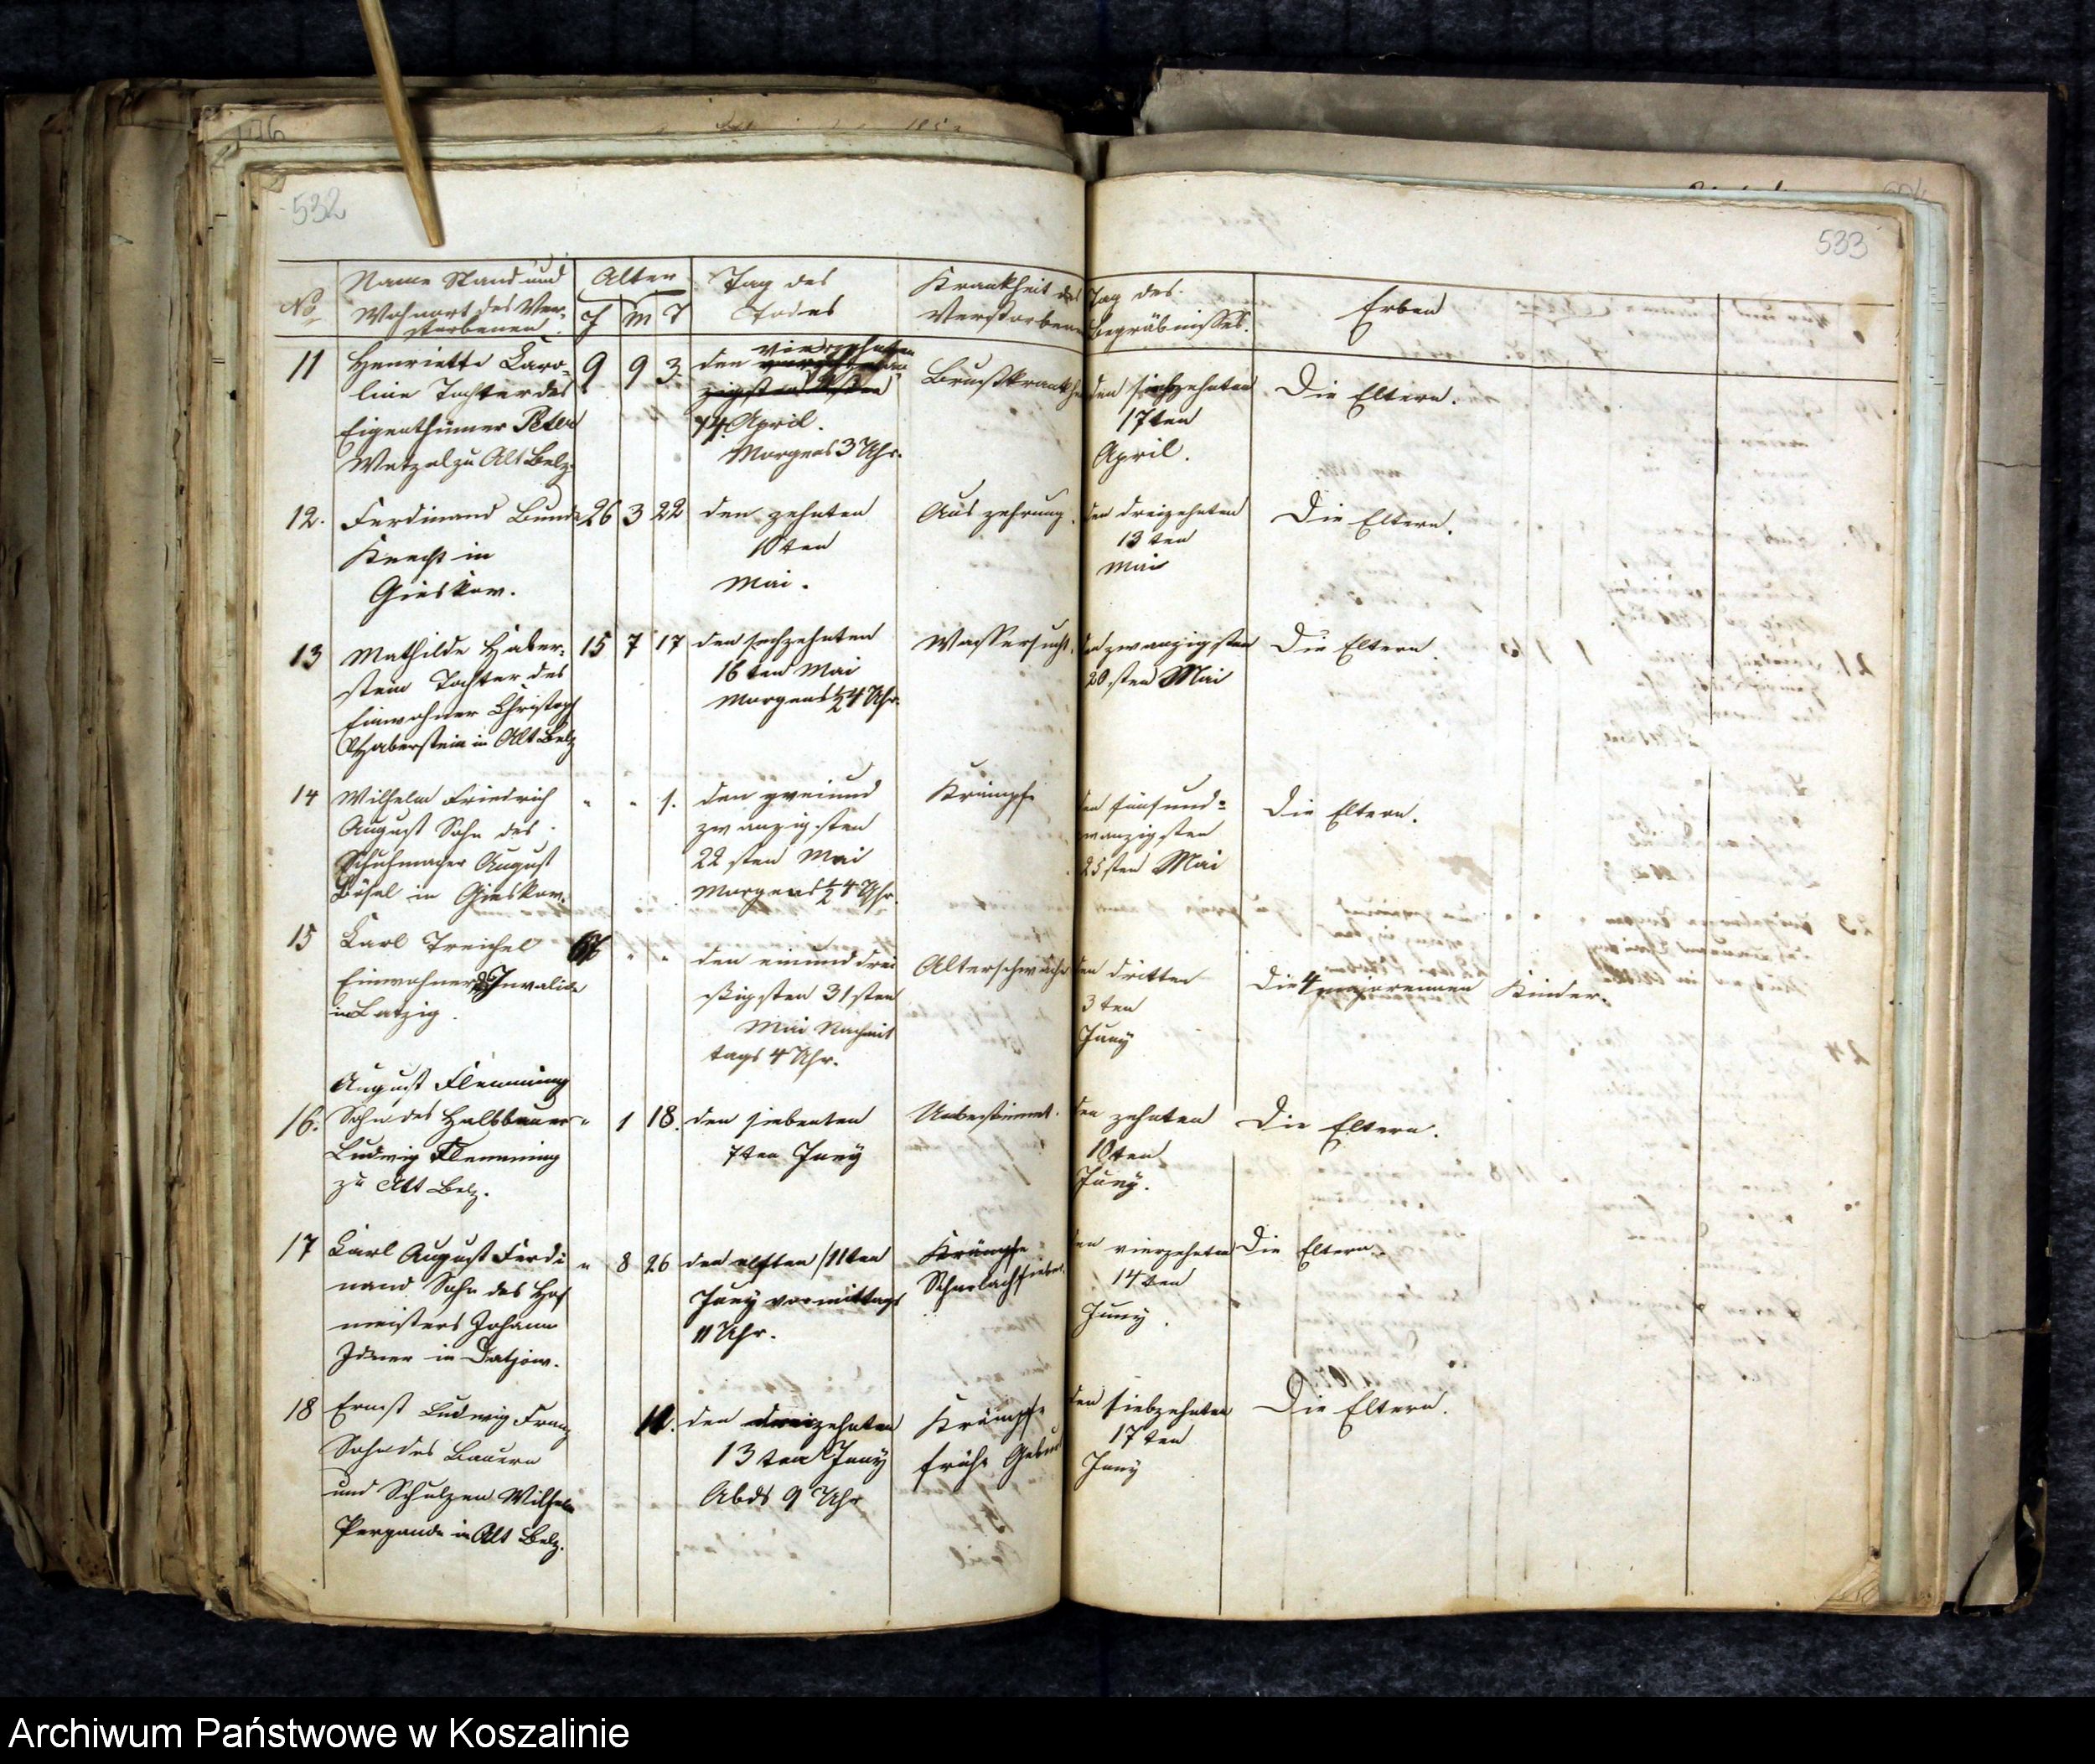 532
No
Name Stand und
Wohnort des Ver-
storbenen.
Alter
J M T
Tag des
Todes
Krankheit des
Verstorbenen
11
Henriette Caro-
line Tochter des
Eigenthümer Peter
Wetzel zu Alt Belz.
9 9 3.
den vierzehnten
14. April.
Morgens 3 Uhr.
Brustkrankh
12.
Ferdinand Bunde
Knecht in
Gieskow.
26 3 22
den zehnten
10ten
Mai.
Auszehrung.
13
Mathilde Haber-
stein Tochter des
Einwohner Christoph
Haberstein in Alt Belz
15 7 17
den sechzehnten
16ten Mai
Morgens ½ 4 Uhr.
Wassersucht.
14
Wilhelm Friedrich
August Sohn des
Schuhmacher August
Bösel in Gieskow.
" " 1.
den zweiund
zwanzigsten
22sten Mai
Morgens ½ 4 Uhr.
Krämpfe
15
Carl Treichel
Einwohner Invalide
in Latzig.
" "
den einunddrei
ßigsten 31sten
Mai Nachmit
tags 4 Uhr.
Alterschwäche
16.
August Flemming
Sohn des Halbbauer
Ludwig Flemming
zu Alt Belz.
" 1 18.
den siebenten
7ten Juny
Unbestimmt.
17
Carl August Ferdi
nand Sohn des Hof
meisters Johann
in Datjow.
" 8 26
den elften /11ten
Juny vormittags
11 Uhr.
Krämpfe
Scharlachfieber.
18
Ernst Ludwig Franz
Sohn des Bauern
und Schulzen Wilhelm
Pergande in Alt Belz.
den dreizehnten
13ten Juny
Abds 9 Uhr
Krämpfe
frühe Geburt
533
Tag des
Begräbnisses.
Erben
den siebzehnten
17ten
April.
Die Eltern.
den dreizehnten
13ten
Mai
Die Eltern.
den zwanzigsten
20sten Mai
Die Eltern.
den fünfund-
zwanzigsten
25sten Mai
Die Eltern.
den dritten
3ten
Juny
Die 4 majorennen Kinder.
den zehnten
10ten
Juny.
Die Eltern.
den vierzehnten
14ten
Juny.
Die Eltern.
den siebzehnten
17ten
Juny
Die Eltern.
Archiwum Państwowe w Koszalinie